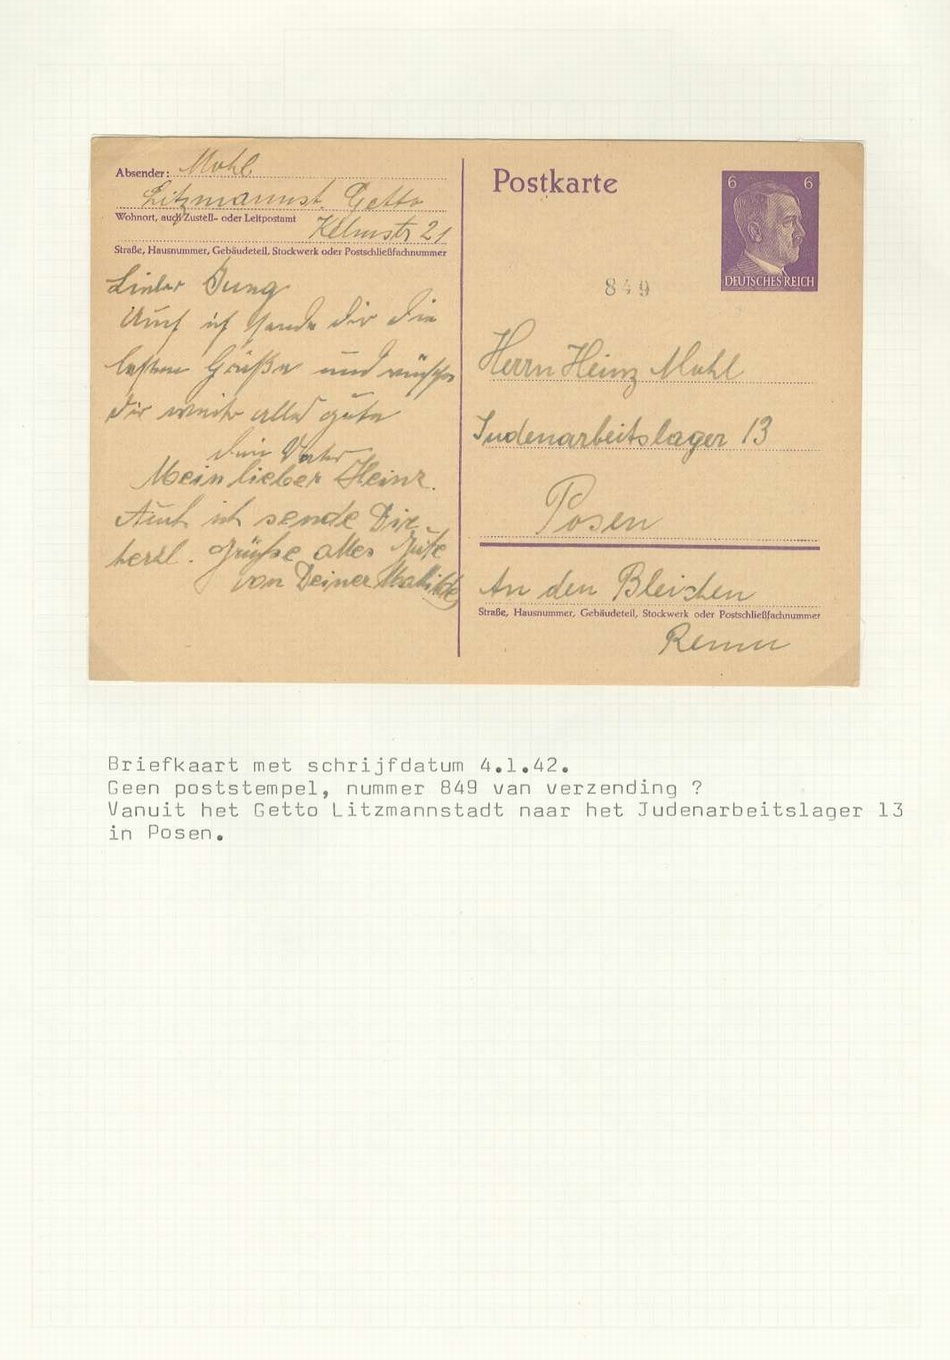 Absender: Mohl
Litzmannst. Getto
Wohnort, auch Zustell- oder Leitpostamt
Kelmstr 21
Straße, Hausnummer, Gebäudeteil, Stockwerk oder Postschließfachnummer
Lieber Jung
Auch ich sende dir die
besten Grüße und wünsche
dir weiter alles gute
dein Vater
Mein lieber Heinz.
Auch ich sende Dir
herzl. Grüsse alles Gute
von Deiner Mathilde
Postkarte
6 6
DEUTSCHES REICH
849
Herrn Heinz Mohl
Judenarbeitslager 13
Posen
An den Bleichen
Straße, Hausnummer, Gebäudeteil, Stockwerk oder Postschließfachnummer
Briefkaart met schrijfdatum 4.1.42.
Geen poststempel, nummer 849 van verzending ?
Vanuit het Getto Litzmannstadt naar het Judenarbeitslager 13
in Posen.